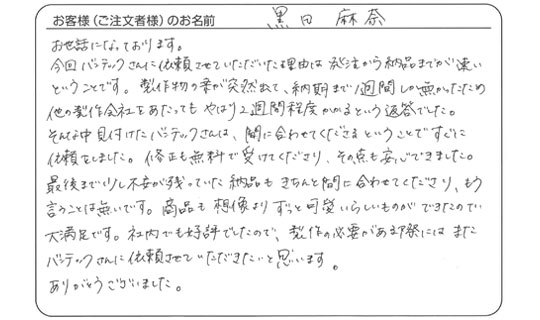 お客様（ご注文者様）のお名前 黒田 麻奈
お世話になっております。
今回バッテックさんに依頼させていただいた理由は発注から納品までが速い
ということです。製作物の案が突然出て、納期まで1週間しか無かったため
他の製作会社をあたってもやはり2週間程度かかるという返答でした。
そんな中見付けたバッテックさんは、間に合わせてくださるということですぐに
依頼をしました。修正も無料で受けてくださり、その点も安心できました。
最後まで少し不安が残っていた納品もきちんと間に合わせてくださり、もう
言うことは無いです。商品も想像よりずっと可愛いらしいものができたので
大満足です。社内でも好評でしたので、製作の必要がある際にはまた
バッテックさんに依頼させていただきたいと思います。
ありがとうございました。